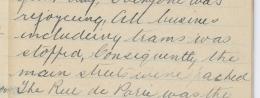 day. Everyone was
rejoycing, All busines
includeing trams was
stopped, Consequently, the
main streets were packed
The Rue de Paris was the